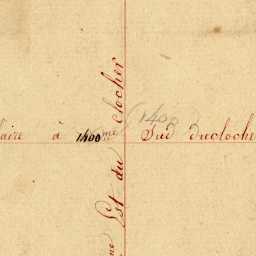 laire à 1400me Sud du cloche
140
me Est du clocher